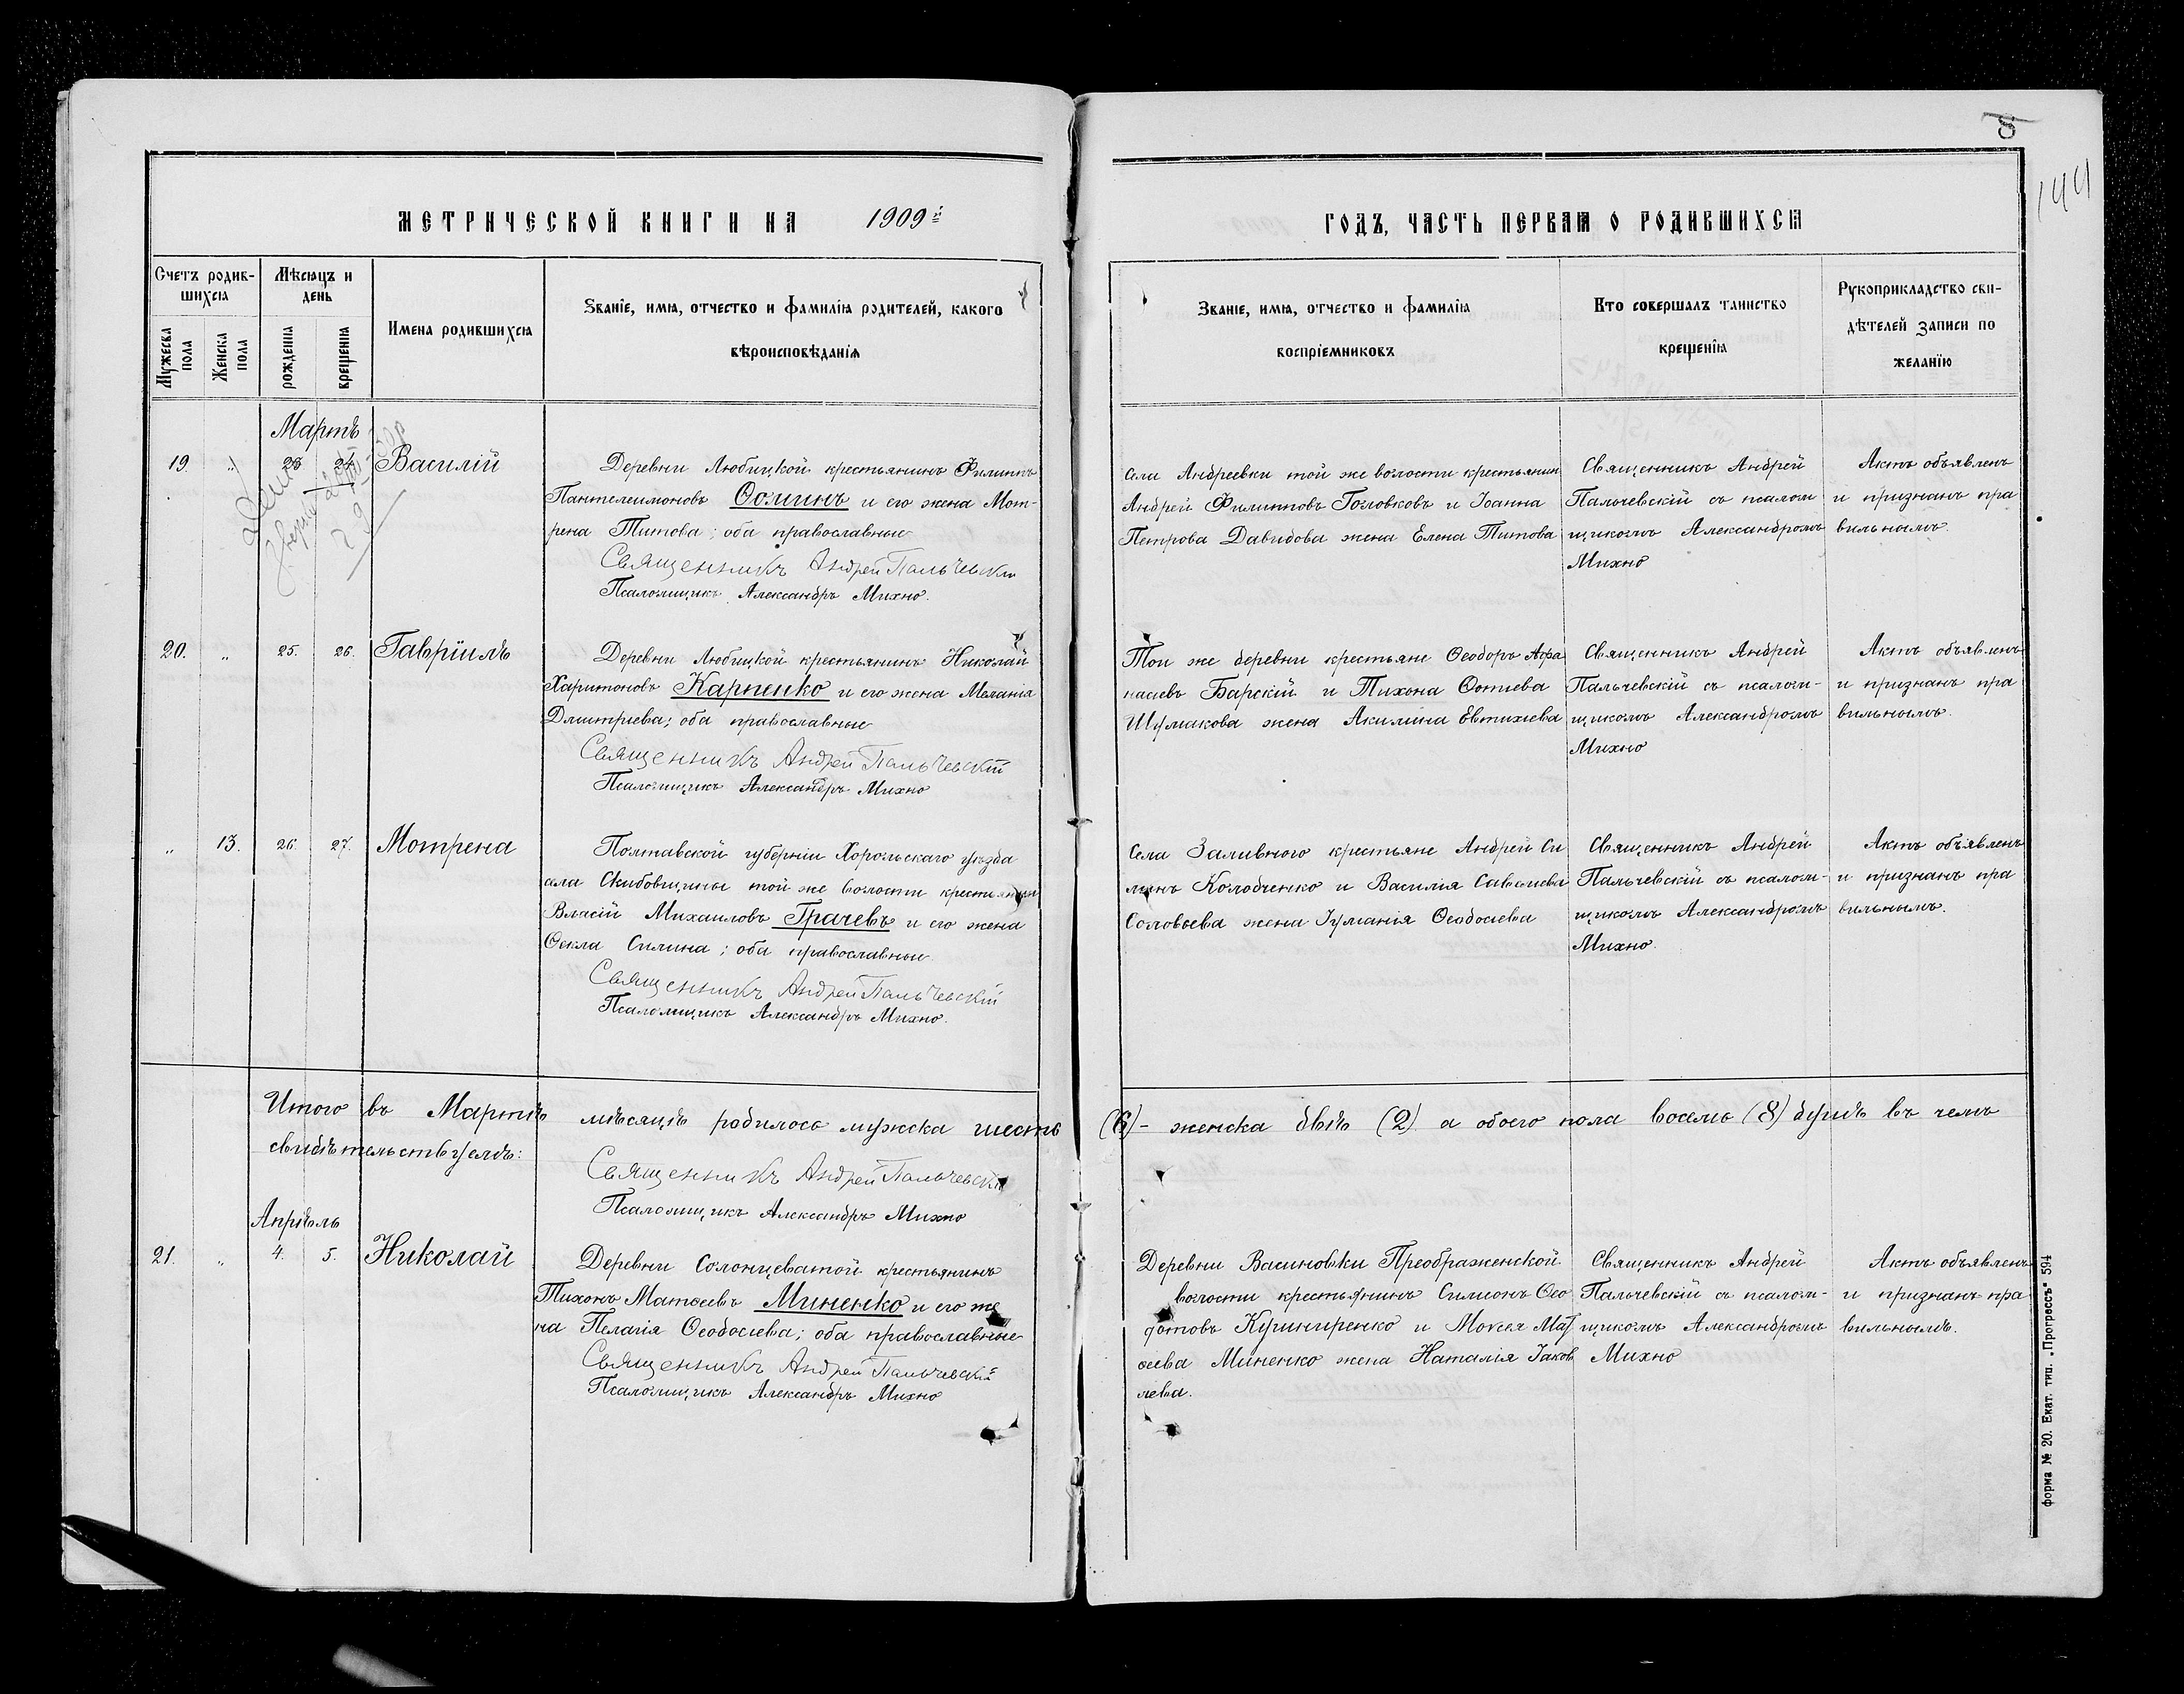 8
МЕТРИЧЕСКОЙ КНИГИ НА 1909й
ГОДЪ, ЧАСТЬ ПЕРВАЯ О РОДИВШИХСЯ
Счетъ родив-
шихся
Мужеска
пола
Женска
пола
Мѣсяцъ и
день
рожденія
крещенія
Имена родившихся
Званіе, имя, отчество и фамилія родителей, какого
вѣроисповѣданія
Званіе, имя, отчество и фамилія
воспріемниковъ
Кто совершалъ таинство
крещенія
Рукоприкладство сви-
дѣтелей записи по
желанію
Мартъ
19. „ 23 24 Василій
Деревни Любицкой крестьянинъ Филиппъ
Пантелеимоновъ Ѳоминъ и его жена Мот-
рена Титова; оба православные
Священникъ Андрей Пальчевскій
Псаломщикъ Александръ Михно.
Села Андреевки той же волости крестьянин
Андрей Филипповъ Головковъ и Іоанна
Петрова Давидова жена Елена Титова
Священникъ Андрей
Пальчевскій съ псалом
щикомъ Александромъ
Михно
Актъ объявленъ
и признанъ пра
вильнымъ.
20. „ 25. 26. Гавріилъ
Деревни Любицкой крестьянинъ Николай
Харитоновъ Карпенко и его жена Меланія
Дмитріева; оба православные
Священникъ Андрей Пальчевскій
Псаломщикъ Александръ Михно
Той же деревни крестьяне Ѳеодоръ Аѳа
насіевъ Барскій и Тихона Ѳотіева
Шумакова жена Акилина Евтихіева
Священникъ Андрей
Пальчевскій съ псалом-
щикомъ Александромъ
Михно
Актъ объявленъ
и признанъ пра
вильнымъ.
„ 13. 26. 27. Мотрена
Полтавской губерніи Хорольскаго уѣзда
села Скибовщины той же волости крестьянин
Власій Михаиловъ Грачевъ и его жена
Ѳекла Силина; оба православные
Священникъ Андрей Пальчевскій
Псаломщикъ Александръ Михно.
Села Заливного крестьяне Андрей Си
линъ Колодченко и Василія Саввиева
Соловьева жена Іуманія Ѳеодосіева
Священникъ Андрей
Пальчевскій съ псалом-
щикомъ Александромъ
Михно.
Актъ объявленъ
и признанъ пра
вильнымъ.
Итого въ Мартѣ мѣсяцѣ родилось мужска шесть (6)- женска двѣ (2) а обоего пола восемь (8) душъ въ чемъ
свидѣтельствуемъ:
Священникъ Андрей Пальчевскій
Псаломщикъ Александръ Михно
Апрѣль
21. „ 4. 5. Николай
Деревни Солонцеватой крестьянинъ
Тихонъ Матѳеевъ Миненко и его же
на Пелагія Ѳеодосіева; оба православные
Священникъ Андрей Пальчевскій
Псаломщикъ Александръ Михно
Деревни Васиновки Преображенской
волости крестьянинъ Симеонъ Ѳео
дотовъ Кушниренко и Моисея Мат
ѳеева Миненко жена Наталія Іаков
лева.
Священникъ Андрей
Пальчевскій съ псалом-
щикомъ Александромъ
Михно
Актъ объявленъ
и признанъ пра
вильнымъ.
форма № 20. Екат. тип. „Прогрессъ" 594